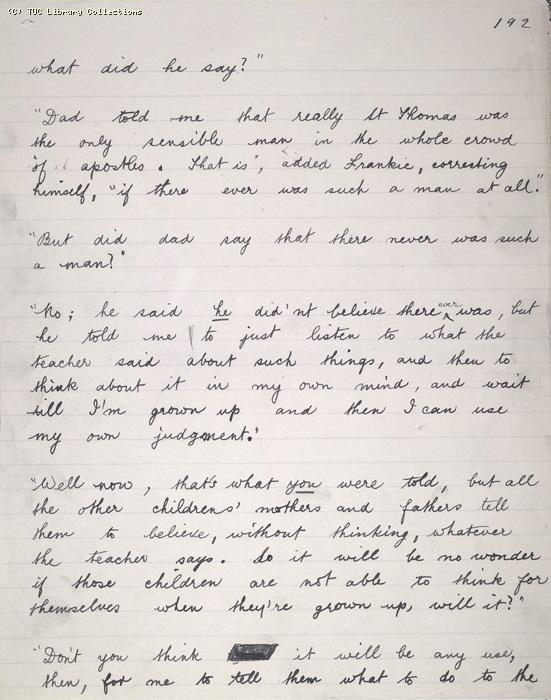 (C) TUC Library Collections
192
what did he say?"
"Dad told me that really St Thomas was
the only sensible man in the whole crowd
of apostles. That is", added Frankie, correcting
himself, "if there ever was such a man at all."
"But did dad say that there never was such
a man?"
"No; he said he did'nt believe there ever was, but
he told me to just listen to what the
teacher said about such things, and then to
think about it in my own mind, and wait
till I'm grown up and then I can use
my own judgment."
"Well now, that's what you were told, but all
the other childrens' mothers and fathers tell
them to believe, without thinking, whatever
the teacher says. So it will be no wonder
if those children are not able to think for
themselves when they're grown up, will it?"
"Don't you think it will be any use,
then, for me to tell them what to do to the